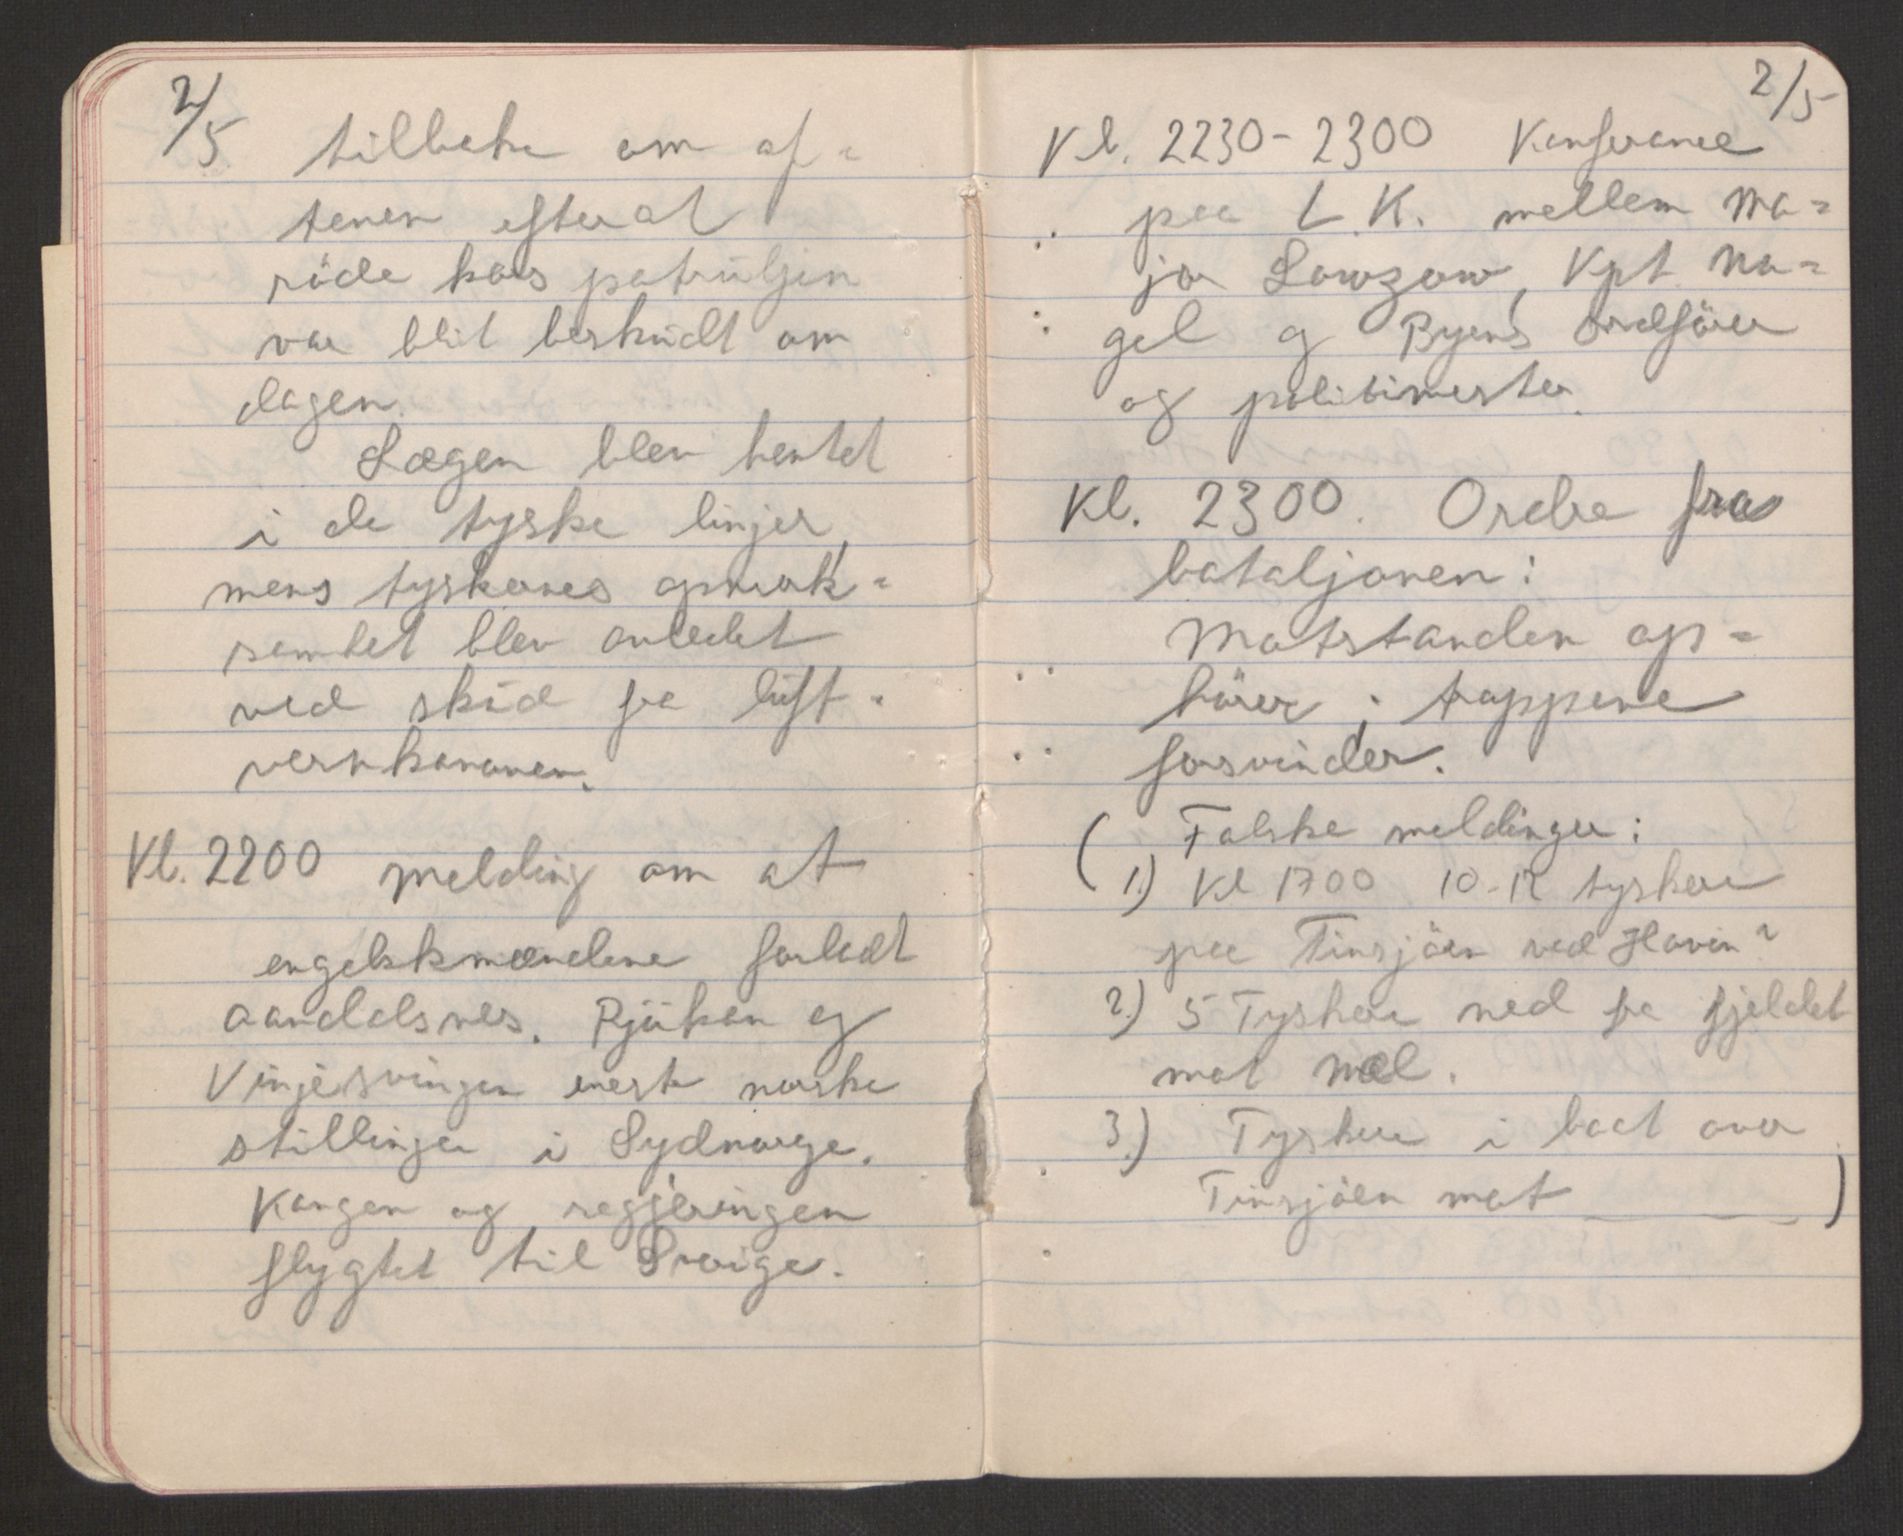 2/5
tilbake om af=
tenen efter at
röde kors patruljen
var blit beskudt om
dagen.
Lægen blev hentet
i de tyske linjer,
mens tyskernes opmerk=
somhet blev avledet
ved skud fra luft=
vernkanonen.
Kl. 2200 melding om at
engelskmændene forlatt
Aandalsnes. Rjukan og
Vinjesvingen eneste norske
stillinger i Sydnorge.
Kongen og regjeringen
flygtet til Sverige.
2/5
Kl. 2230-2300 Konferance
paa L.K. mellem Ma=
jor Lowzow, Kpt. Na=
gel og Byens ordförer
og politimester.
Kl. 2300. Ordre fra
bataljonen:
Motstanden op=
hörer; troppene
forsvinder.
( Falske meldinger:
1.) Kl 1700 10-12 tyskere
paa Tinsjöen ved Hovin?
2.) 5 Tyskere ned fra fjeldet
mot Mæl.
3.) Tyskere i baat over
Tinsjöen mot _ _ _ )